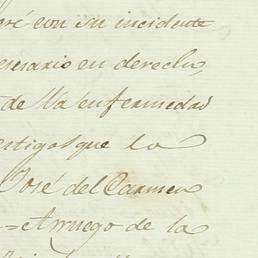 eré con su incidente
esesario en derecho,
de Va enfermedad
estigos que lo
José del Carmen
= A ruego de la